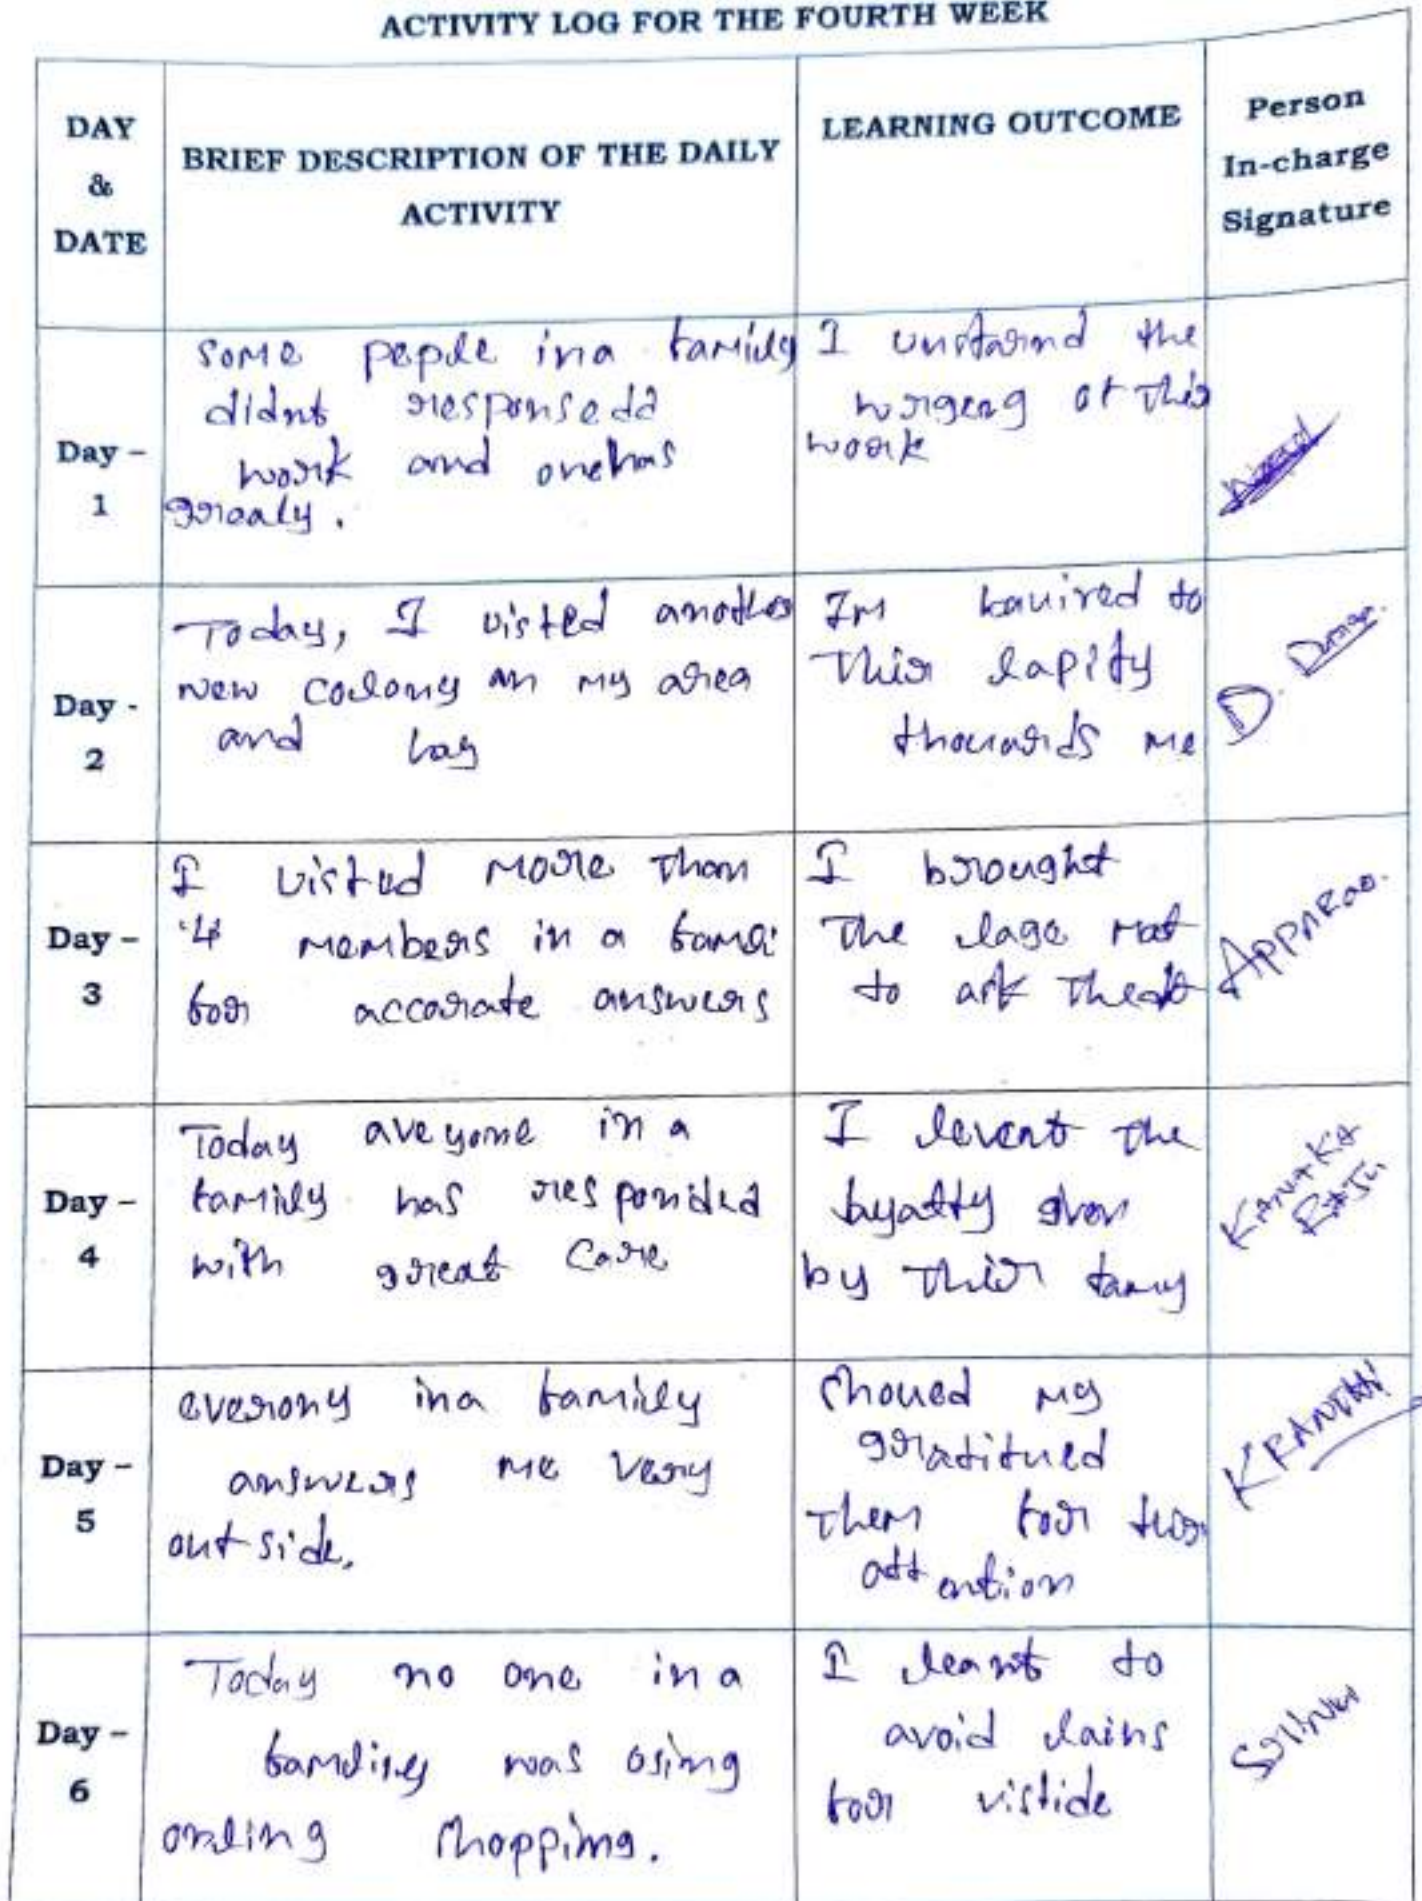 ACTIVITY LOG FOR THE FOURTH WEEK
DAY
&
DATE
BRIEF DESCRIPTION OF THE DAILY
ACTIVITY
LEARNING OUTCOME
Person
In-charge
Signature
Day –
1
some pepdle in a family
didnt responsedd
work and one has
grealy.
I the
of this
work
Day -
2
Today, I visted another
new colony an my area
and
Im to
this
me
D.
Day –
3
I visted more than
4 members in a
for accarate answers
I brought
the
to ask
APPARao.
Day –
4
Today aveyone in a
family has responded
with great care
I the
by thier
KANAKA
RAJU
Day –
5
everony in a family
answers me very
out side.
showed my
gratitued
them for
attention
KRANTHI
Day –
6
Today no one in a
was osing
onling shopping.
I learnt to
avoid
for